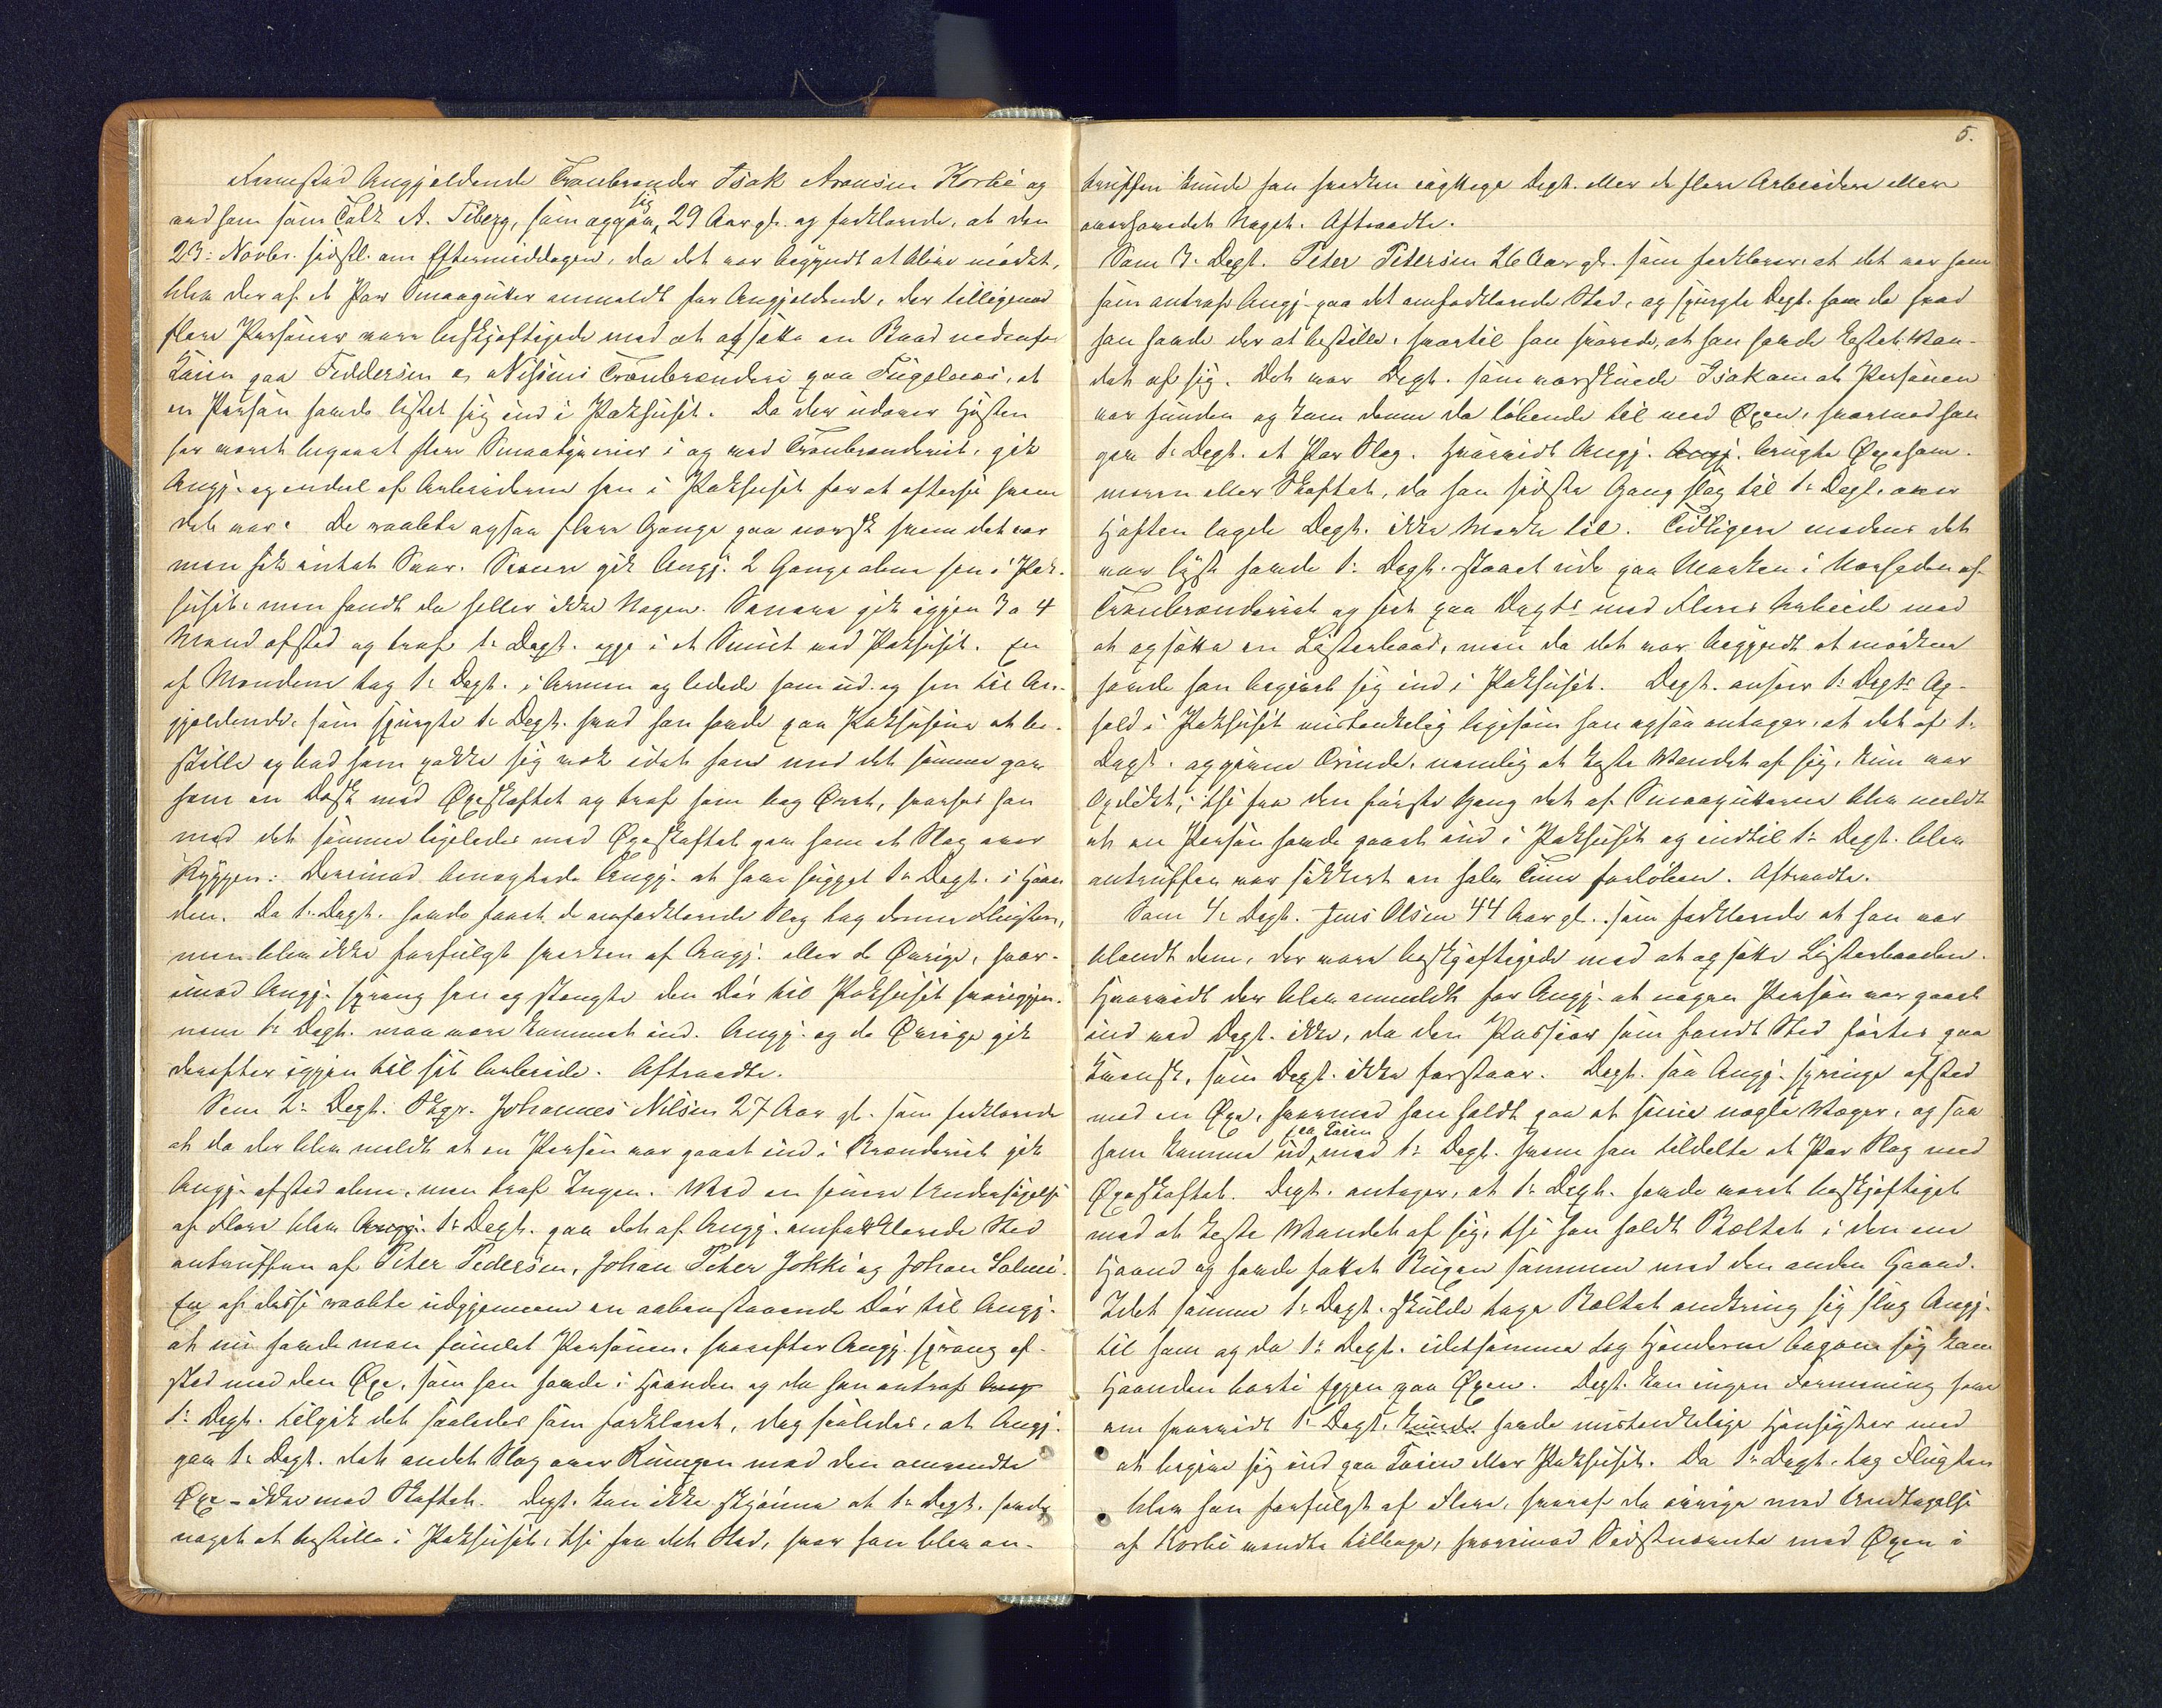 Fremstod Angjældende Tranbrænder Isak Aronsen Korbi og
ved ham som Tolk A. Siberg, som opgav sig 29 Aar gl. og forklarede, at den
23: Novbr. sidstl. om Eftermiddagen, da det var begyndt at blive mörkt,
blev der af et Par Smaagutter anmeldt for Angjældende, der tilligemed
flere Personer vare beskjæftigede med at opsætte en Baad nedenfor
Kaien paa Feddersen & Nissens Tranbrænderi paa Fuglenæs, at
en Person havde listet sig ind i Pakhuset. Da der udover Hösten
har været begaaet flere Smaatyverier i og ved Tranbrænderiet, gik
Angj. og endel af Arbeiderne hen i Pakhuset for at efterse hvem
det var. De raabte ogsaa flere Gange paa norsk hvem det var
men fik intet Svar. Senere gik Angj. 2 Gange alene hen i Pak-
huset, men fandt da heller ikke Nogen. Senere gik igjen 3 a 4
Mand afsted og traf 1. Dept. oppe i et Smut ved Pakhuset. En
af Mændene tog 1. Dept. i Armen og ledede ham ud og hen til An-
gjældende, som spurgte 1. Dept. hvad han havde paa Pakhusene at be-
stille og bad ham pakke sig væk idet han med det samme gav
ham en Dask med Öxeskaftet og traf ham bag Öret, hvorpaa han
med det samme ligeledes med Öxeskaftet gav ham et Slag over
Ryggen. Derimod benægtede Angj. at have hugget 1. Dept. i Haan
den. Da 1. Dept. havde faaet de omforklarede Slag tog denne Flugten,
men blev ikke forfulgt hverken af Angj. eller de Övrige, hvor-
imod Angj. sprang hen og stængte den Dör til Pakhuset hvorigjen-
nem 1. Dept. maa være kommet ind. Angj. og de Övrige gik
derefter igjen til sit Arbeide. Aftraadte.
Som 2. Dept. Skpr. Johannes Nilsen 27 Aar gl. som forklarede
at da der blev meldt at en Person var gaaet ind i Brænderiet gik
Angj. afsted alene, men traf Ingen. Ved en senere Undersögelse
af Flere blev Angj. 1. Dept. paa det af Angj. omforklarede Sted
antruffen af Peter Pedersen, Johan Peter Jokki og Johan Salmi.
En af disse raabte udgjennem en aabenstaaende Dör til Angj.
at nu havde man fundet Personen, hvorefter Angj. sprang af-
sted med den Öxe, som han havde i Haanden og da han antraf Ang
1. Dept. tilgik det saaledes som forklaret, dog saaledes, at Angj.
gav 1. Dept. det andet Slag over Rumpen med den omvendte
Öxe – ikke med Skaftet. Dept. kan ikke skjönne at 1. Dept. havde
noget at bestille i Pakhuset, thi fra det Sted, hvor han blev an-
5.
truffen kunde han hverken iagttage Dept. eller de flere Arbeidere eller
overhovedet Noget. Aftraadte.
Som 3. Dept. Peter Petersen 26 Aar gl. som forklarer at det var ham
som antraf Angj. paa det omforklarede Sted, og spurgte Dept. ham da hvad
han havde der at bestille, hvortil han svarede, at han havde kastet Van-
det af sig. Det var Dept. som varskuede Isak om at Personen
var funden og kom denne da löbende til med Öxen, hvormed han
gav 1. Dept. et Par Slag. Hvorvidt Angj. Angj. brugte Öxeham-
meren eller Skaftet, da han sidste Gang slog til 1. Dept. over
Hoften lagde Dept. ikke Mærke til. Tidligere medens det
var lyst havde 1. Dept. staaet ude paa Marken i Nærheden af
Tranbrænderiet og seet paa Depts med Fleres Arbeide med
at opsætte en Listerbaad, men da det var begyndt at mörkne
havde han begivet sig ind i Pakhuset. Dept. anser 1. Depts Op-
hold i Pakhuset mistænkelig ligesom han ogsaa antager, at det af 1.
Dept. opgivne Ærinde, nemlig at kaste Vandet af sig, kun var
opdigtet; thi fra den förste Gang det af Smaagutterne blev meldt
at en Person havde gaaet ind i Pakhuset og indtil 1. Dept. blev
antruffen var sikkert en halv Time forlöben. Aftraadte.
Som 4. Dept. Jens Olsen 44 Aar gl. som forklarede at han var
blandt dem, der vare beskjæftigede med at opsætte Listerbaaden.
Hvorvidt der blev anmeldt for Angj. at nogen Person var gaaet
ind ved Dept. ikke, da den Passiar som fandt Sted förtes paa
kvænsk, som Dept. ikke forstaar. Dept. saa Angj. springe afsted
med en Öxe, hvormed han holdt paa at smie nogle Væger, og saa
ham komme ud paa Kaien med 1. Dept. hvem han tildelte et Par Slag med
Öxeskaftet. Dept. antager, at 1. Dept. havde været beskjæftiget
med at kaste Vandet af sig, thi han holdt Bæltet i den ene
Haand og havde fattet Buxen sammen med den anden Haand.
Idet samme 1. Dept. skulde tage Bæltet omkring sig slog Angj.
til ham og da 1. Dept. idetsamme tog Hænderne bagom sig kom
Haanden borti Eggen paa Öxen. Dept. kan ingen Formening have
om hvorvidt 1. Dept. kunde havde mistænkelige Hensigter med
at begive sig ind paa Kaien eller Pakhuset. Da 1. Dept. tog Flugten
blev han forfulgt af Flere, hvoraf de övrige med Undtagelse
af Korbi vendte tilbage, hvorimod Sidstnævnte med Öxen i